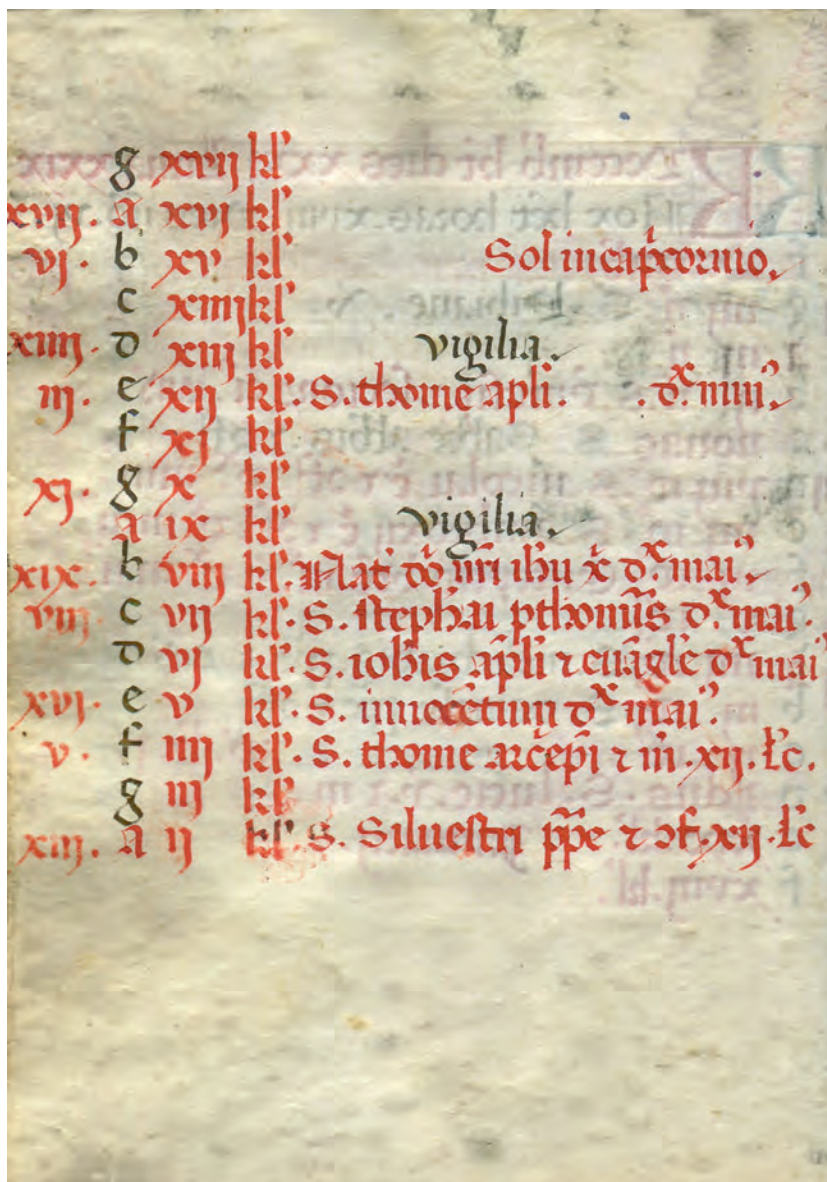 g xvij kl'
xvij. a xvj kl'
vj. b xv kl' Sol in cap̃cornio.
c xiiij kl'
xiiij. d xiij kl' vigilia.
iij. e xij kl'. S. thome apl'i. .d^x. min'.
f xj kl'
xj. g x kl'
a ix kl' vigilia.
xix. b viij kl'. Nat' dõ nr̃i ih̃u x̃ d^x. mai'.
viij. c vij kl'. S. steph̃ai pthom̃is d^x. mai'.
d vj kl'. S. ioh̃is ap̃li ⁊ euãgl'e d^x mai'
xvj. e v kl'. S. innocẽtium d^x mai'.
v. f iiij kl'. S. thome arc̃epi ⁊ m̃. xij. l'c.
g iij kl'
xiij. a ij kl'. S. Siluestri pp̃e ⁊ ɔf. xij. l'c